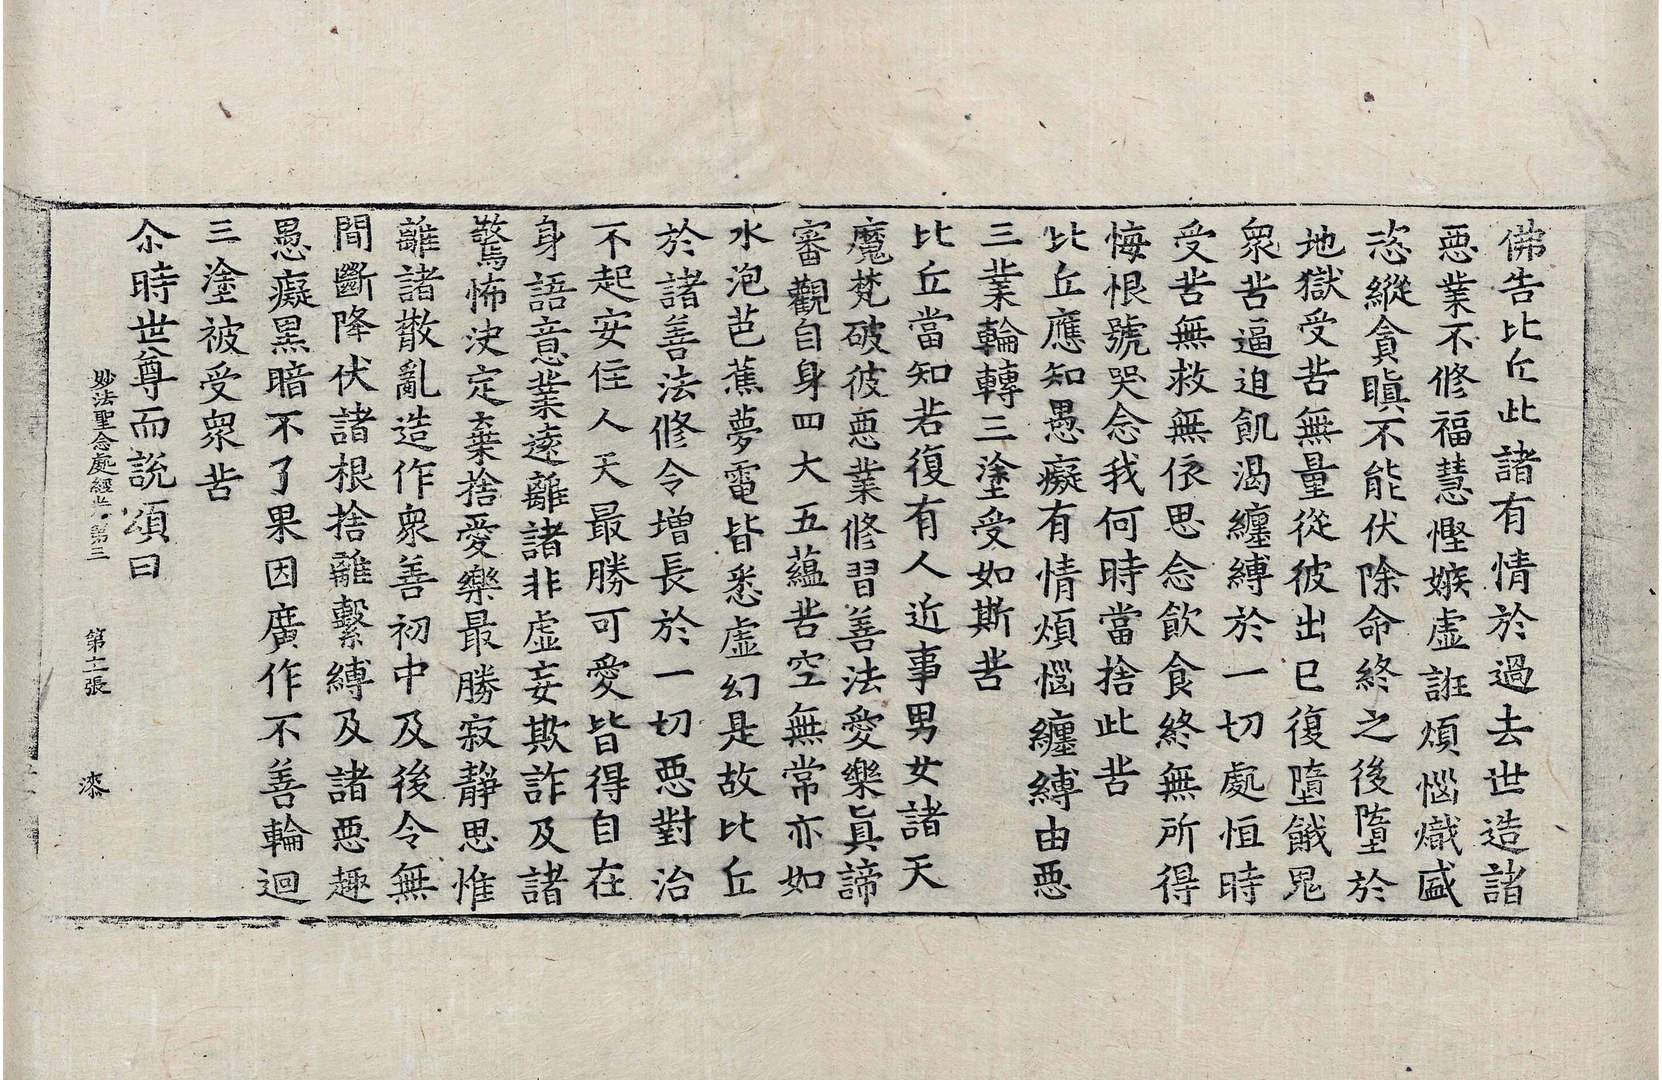 佛告比丘此諸有情於過去世造諸
惡業不修福慧慳嫉虛誑煩惱熾盛
恣縱貪瞋不能伏除命終之後墮於
地獄受苦無量從彼出已復墮餓鬼
衆苦逼迫飢渴纏縛於一切處恒時
受苦無救無依思念飲食終無所得
悔恨號哭念我何時當捨此苦
比丘應知愚癡有情煩惱纏縛由惡
三業輪轉三塗受如斯苦
比丘當知若復有人近事男女諸天
魔梵破彼惡業修習善法愛樂眞諦
審觀自身四大五蘊苦空無常亦如
水泡芭蕉夢電皆悉虛幻是故比丘
於諸善法修令增長於一切惡對治
不起安住人天最勝可愛皆得自在
身語意業遠離諸非虛妄欺詐及諸
驚怖決定棄捨愛樂最勝寂靜思惟
離諸散亂造作衆善初中及後令無
間斷降伏諸根捨離繫縛及諸惡趣
愚癡黑暗不了果因廣作不善輪迴
三塗被受衆苦
尒時世尊而說頌曰
妙法聖念處經卷第三 第十一張 漆